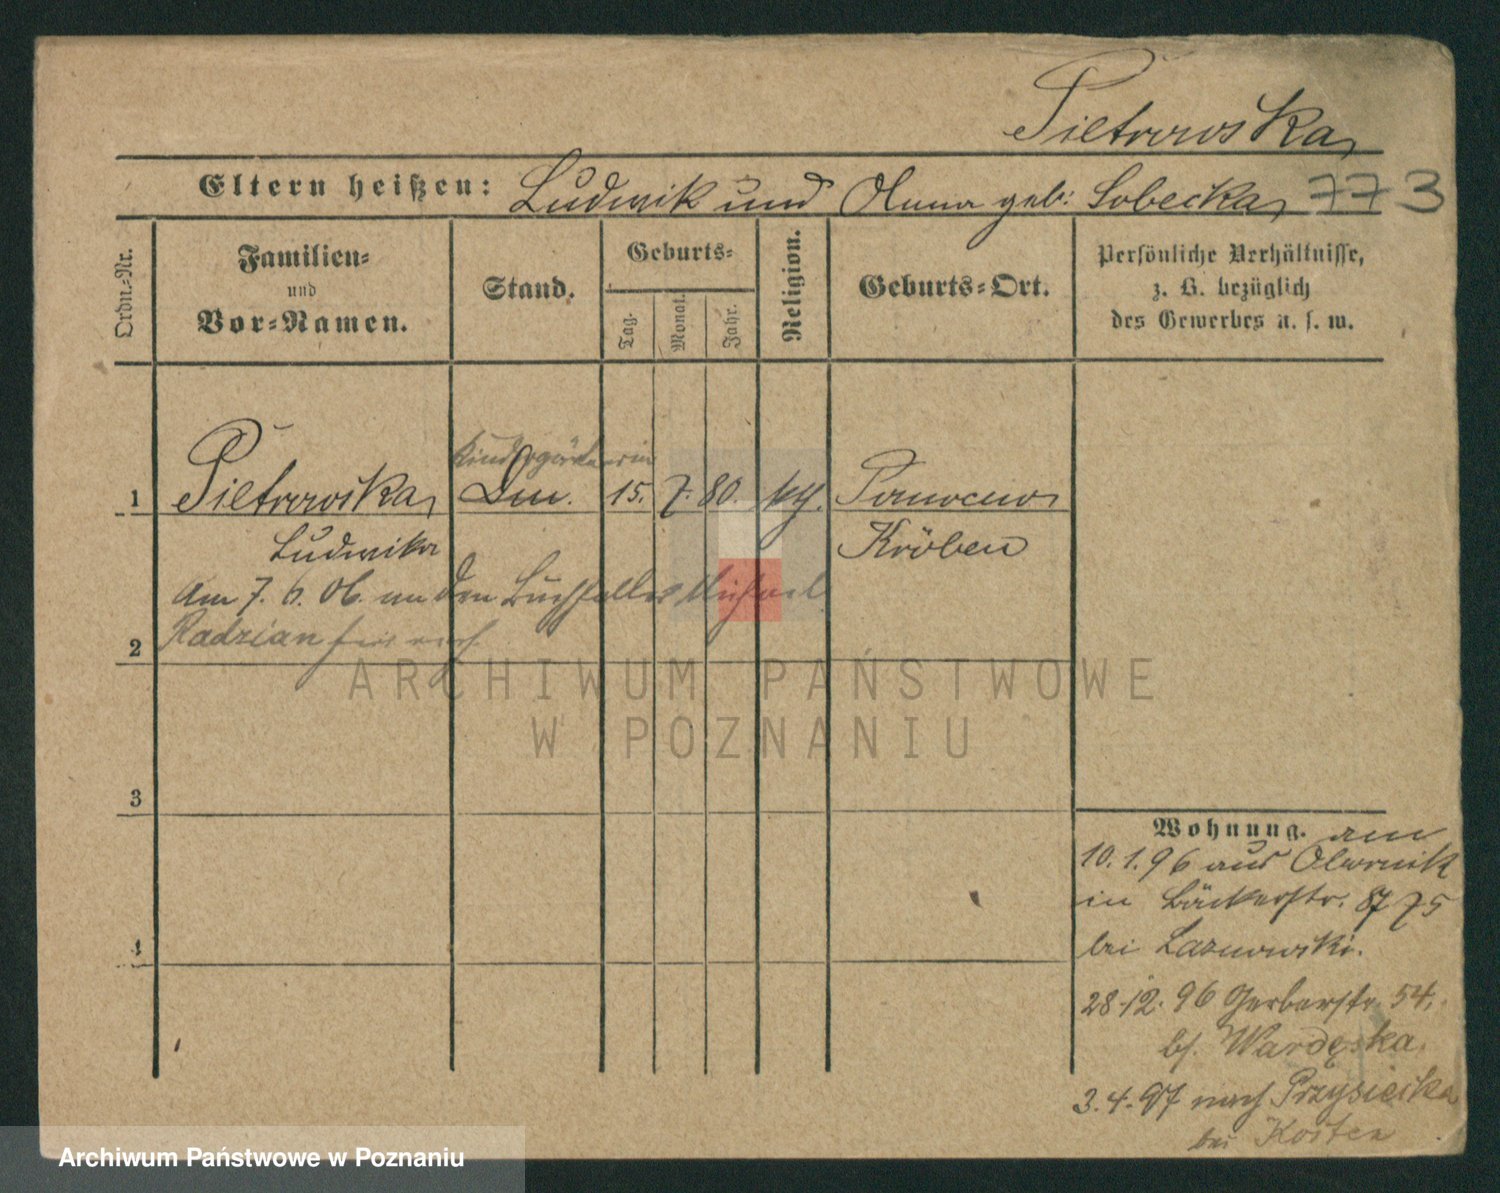 Pietrowska
Eltern heißen: Ludwik und Anna geb: Sobecka 773
Ordn.-Nr.
Familien-
und
Vor-Namen.
Stand.
Geburts-
Tag.
Monat.
Jahr.
Religion.
Geburts-Ort.
Persönliche Verhältnisse,
z. B. bezüglich
des Gewerbes u. s. w.
Kindergärtnerin
1 Pietrowska 15. 7. 80 Ponwcowo
Ludwika Kröben
Am 7. 6. 06. an den Buchhalter Michael
2 Radzian
3
4
Wohnung. am
10. 1. 96 aus
in Bäckerstr. 8
bei Laznowski.
28.12.96 Gerberstr. 54,
bs. Wardęska.
3.4.97 nach Przysieka
bei Kosten
ARCHIWUM PAŃSTWOWE
W POZNANIU
Archiwum Państwowe w Poznaniu